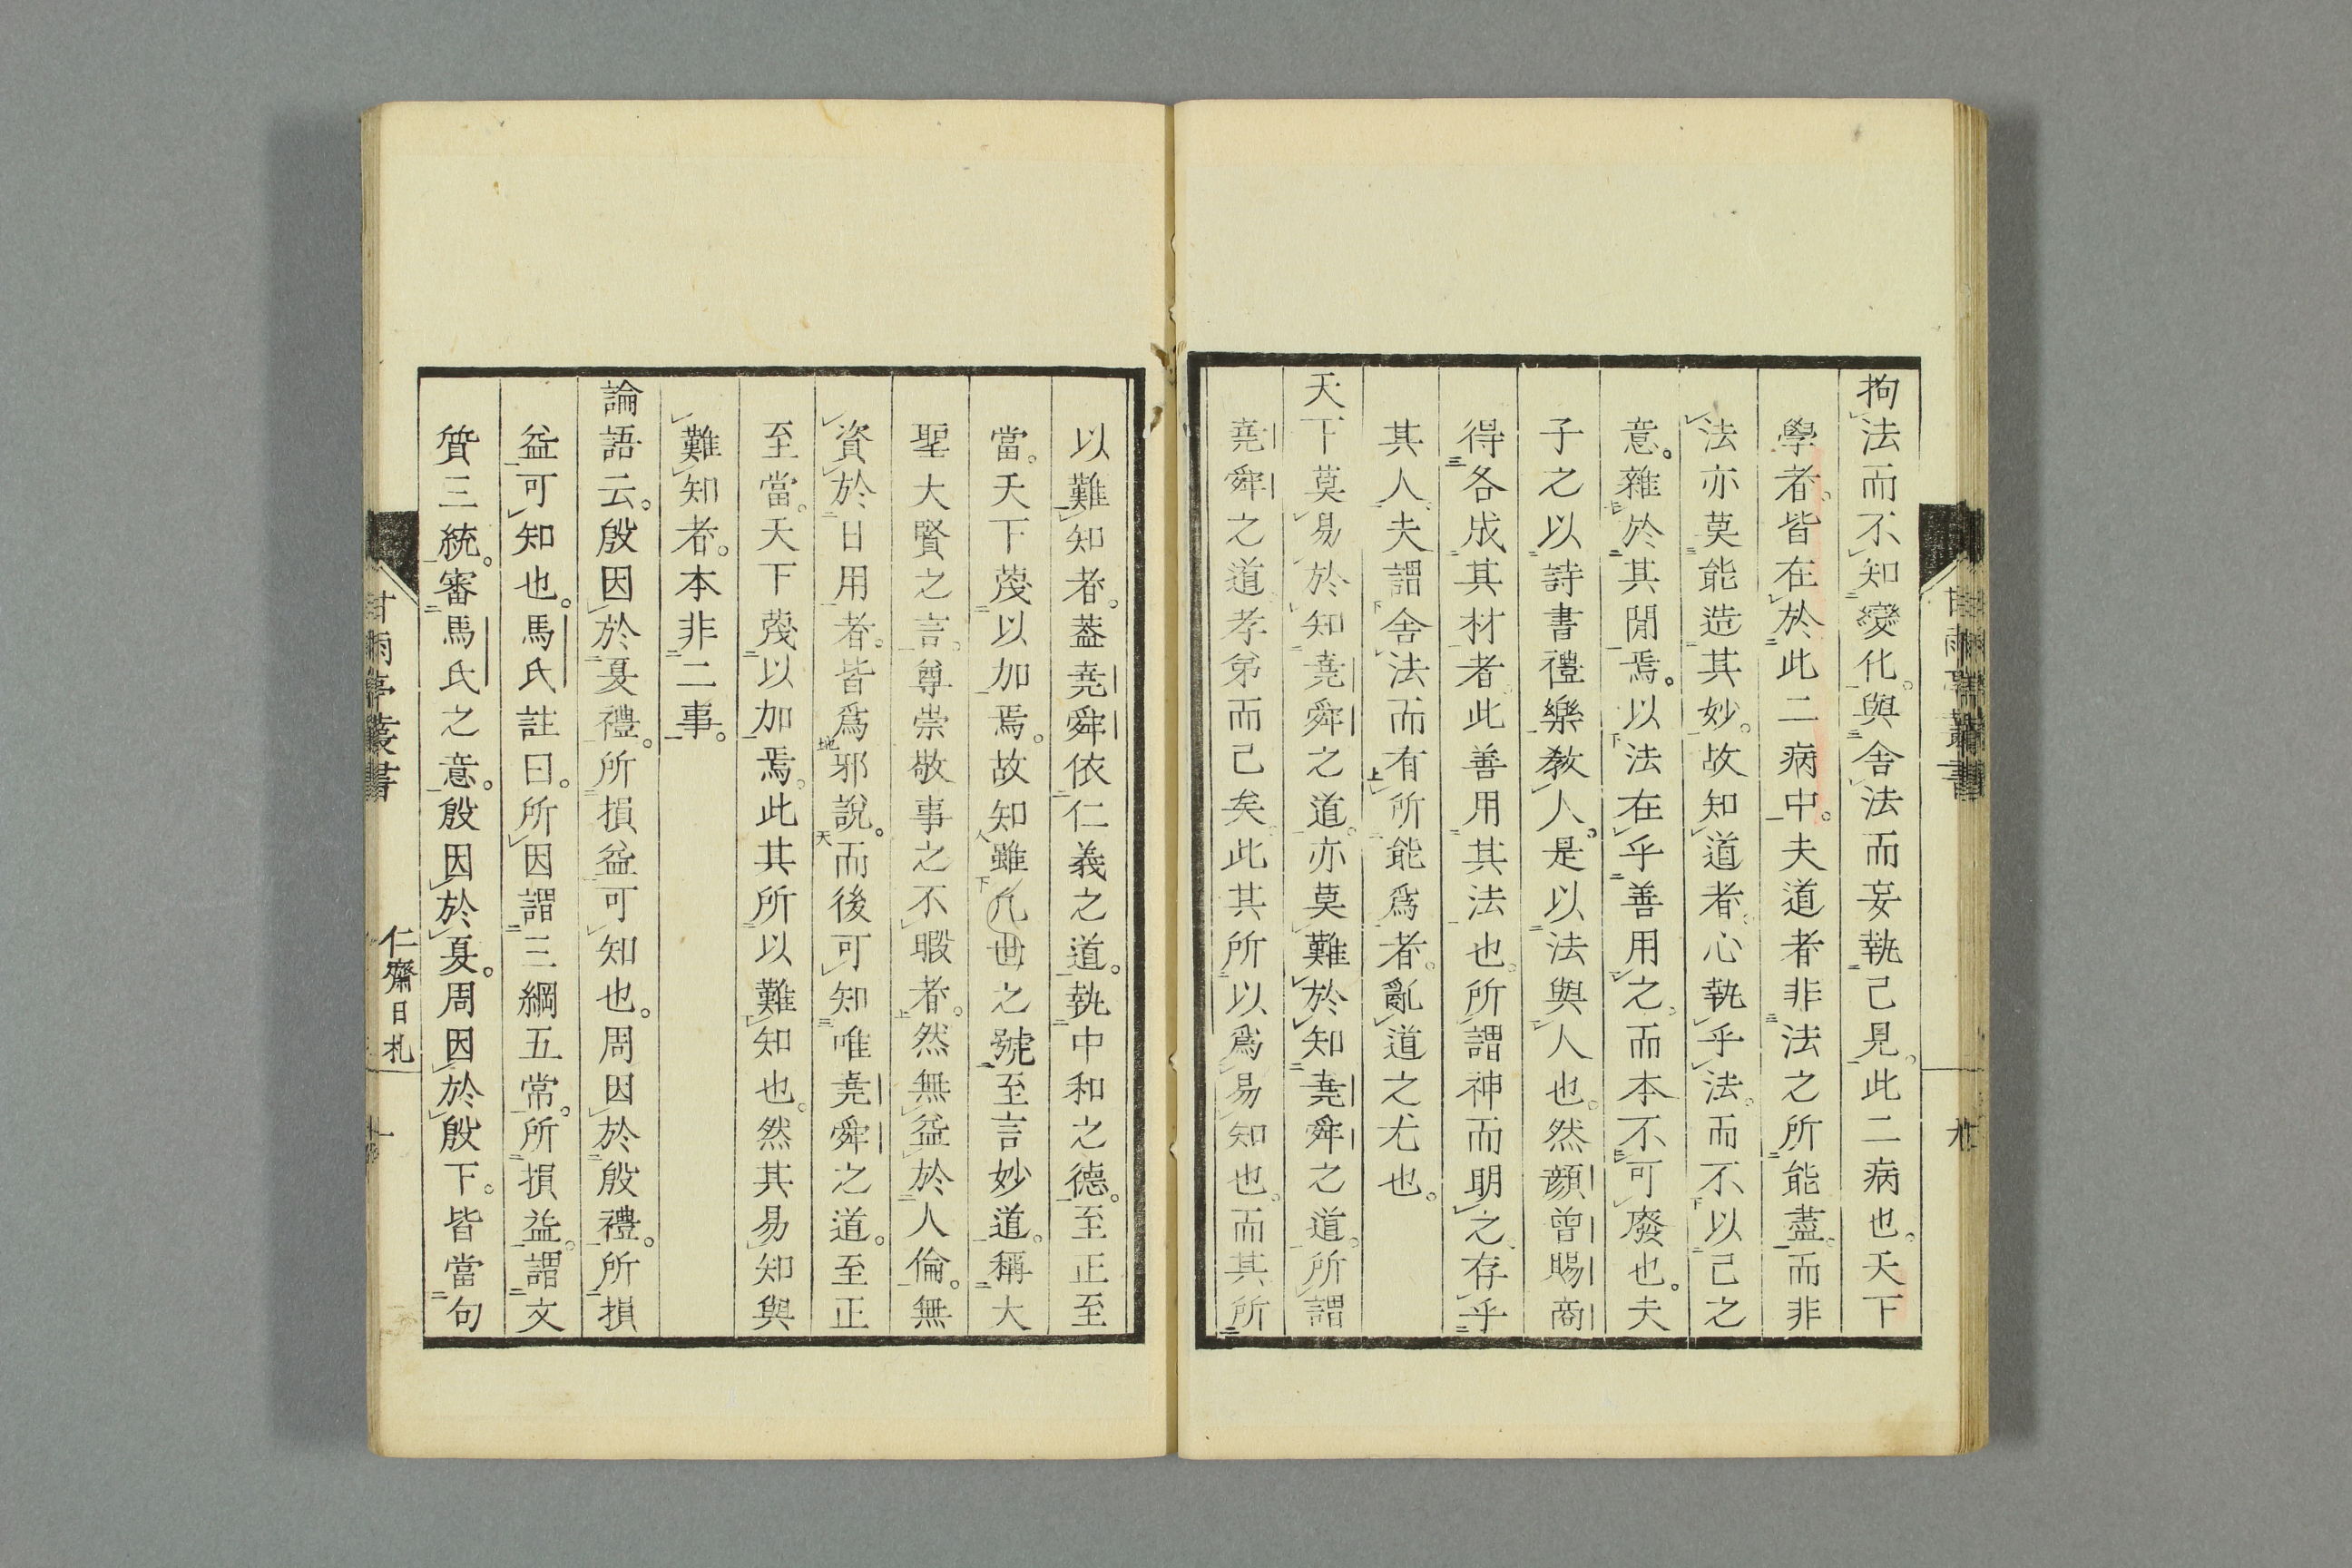 拘法而不知變化。與舍法而妄執己見。此二病也。天下
學者。皆在於此二病中。夫道者非法之所能盡。而非
法亦莫能造其妙。故知道者。心執乎法。而不以己之
意。雜於其閒焉。以法在乎善用之。而本不可廢也。夫
子之以詩書禮樂教人。是以法與人也。然顔曾賜商
得各成其材者。此善用其法也。所謂神而明之。存乎
其人。夫謂舍法而有所能爲者。亂道之尤也。
天下莫易於知堯舜之道。亦莫難於知堯舜之道。所謂
堯舜之道孝弟而已矣。此其所以爲易知也。而其所
以難知者。蓋堯舜依仁義之道。執中和之德。至正至
當。天下蔑以加焉。故知雖凡世之號至言妙道。稱大
聖大賢之言。尊崇敬事之不暇者。然無益於人倫。無
資於日用者。皆爲邪說。而後可知唯堯舜之道。至正
至當。天下蔑以加焉。此其所以難知也。然其易知與
難知者。本非二事。
論語云。殷因於夏禮。所損益可知也。周因於殷禮。所損
益可知也。馬氏註曰。所因謂三綱五常。所損益。謂文
質三統。審馬氏之意。殷因於夏。周因於殷下。皆當句
甘雨亭叢書
仁齋日札
十
甘雨亭叢書
九